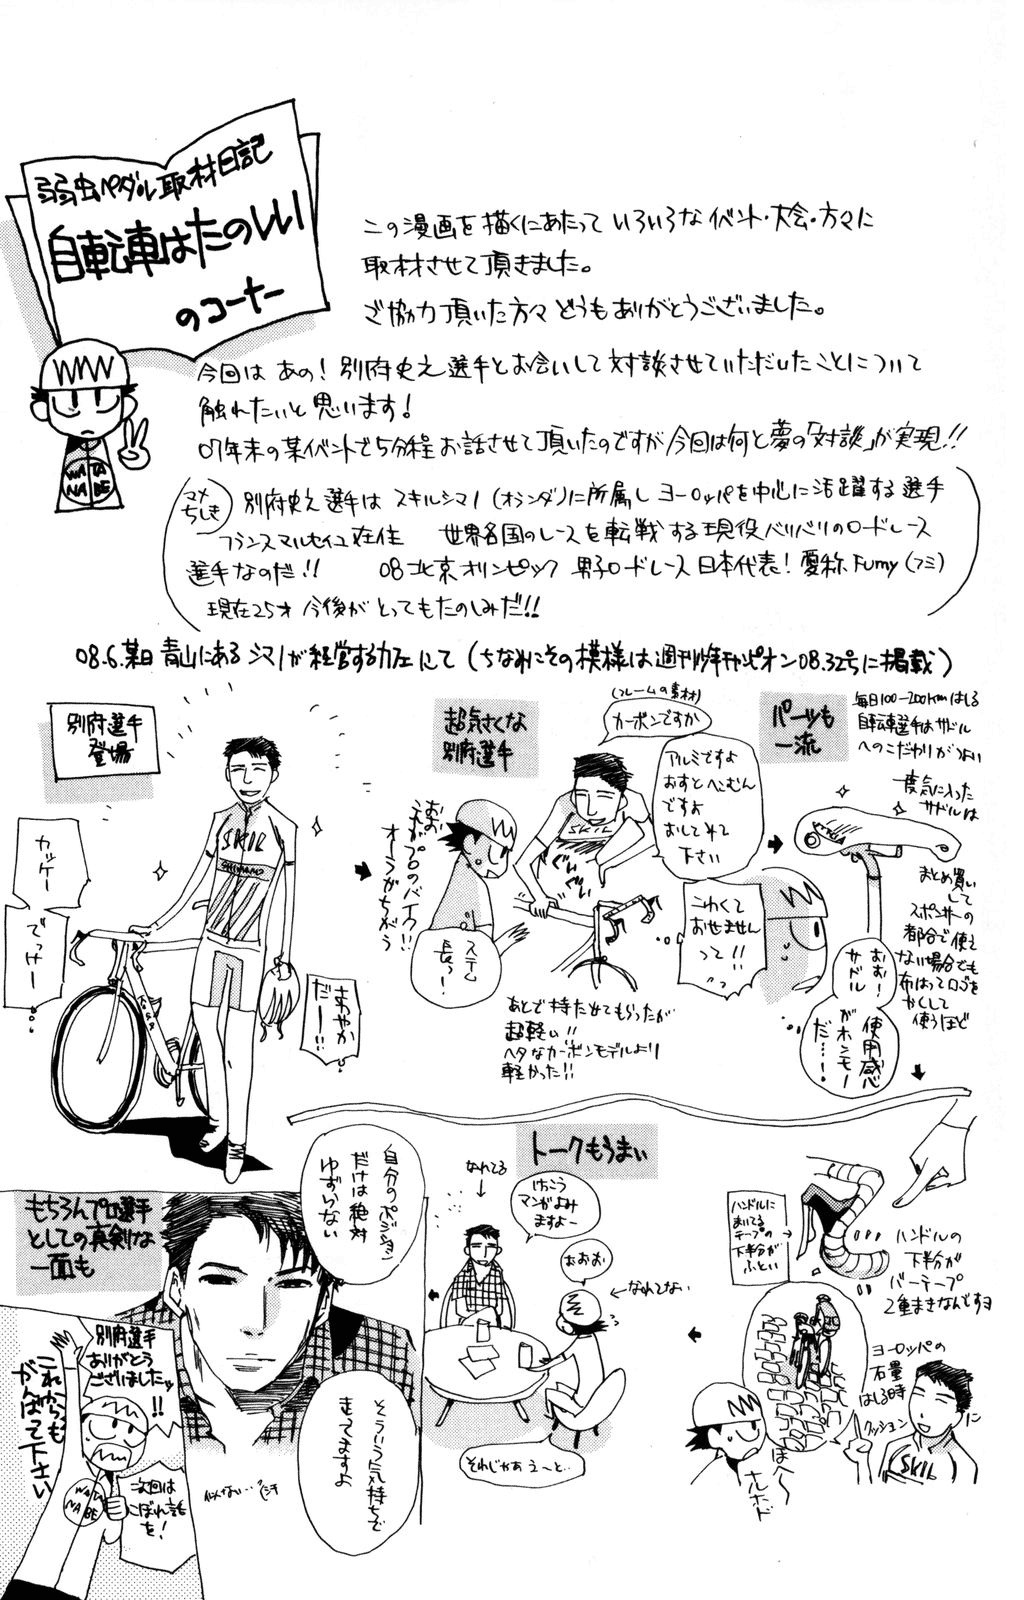 弱虫ペダル取材日記
自転車はたのしい
のコーナー
この漫画を描くにあたって いろいろなイベント・大会・方々に
取材させて頂きました。
ご協力頂いた方々 どうもありがとうございました。
今回は あの! 別府史之選手とお会いして対談させていただいたことについて
触れたいと思います!
07年末の某イベントで5分程お話させて頂いたのですが今回は何と夢の「対談」が実現!!
マメ
ちしき
別府史之選手は スキルシマノ(オランダ)に所属し ヨーロッパを中心に活躍する選手
フランスマルセイユ在住 世界各国のレースを転戦する現役バリバリのロードレース
選手なのだ!! 08北京オリンピック 男子ロードレース日本代表! 愛称Fumy(フミ)
現在25才 今後がとってもたのしみだ!!
08.6.某日 青山にあるシマノが経営するカフェにて(ちなみにその模様は週刊少年チャンピオン08.32号に掲載)
別府選手
登場
カッケー
でっけー
さわやか
だー!!
SKIL
SHIMANO
超気さくな
別府選手
(フレームの素材)
カーボンですか
アルミですよ
おすとへこむん
ですよ
おしてみて
下さい
おお
これがプロのバイク!!
オーラがちがう
SKIL
ステム
長っ!
こわくて
おせません
って!!
あとで持たせてもらったが
超軽い!!
ヘタなカーボンモデルより
軽かった!!
パーツも
一流
毎日100-200kmはしる
自転車選手はサドル
へのこだわりがつよい
一度気に入った
サドルは
まとめ買い
して
スポンサーの
都合で使え
ない場合でも
布はってロゴを
かくして
使うほど
おお!
サドル
がホンモノ
使用感
だ…!
ハンドルに
まいてる
テープの
下半分が
ぶとい
ハンドルの
下半分が
バーテープ
2重まきなんですヨ
ヨーロッパの
石畳
はしる時
クッション
に
SKIL
ほへ〜
ナルホド
トークもうまい
なれてる
けっこう
マンガよみ
ますよー
おおお
←なれてない
それじゃあ えーと…
もちろんプロ選手
としての真剣な
一面も
自分のポジション
だけは絶対
ゆずらない
そういう気持ちで
きてますよ
似てない…
別府選手
ありがとう
ございましたッ
!!
これからも
がんばって下さい
次回は
こぼれ話
を!
WATA
NABE